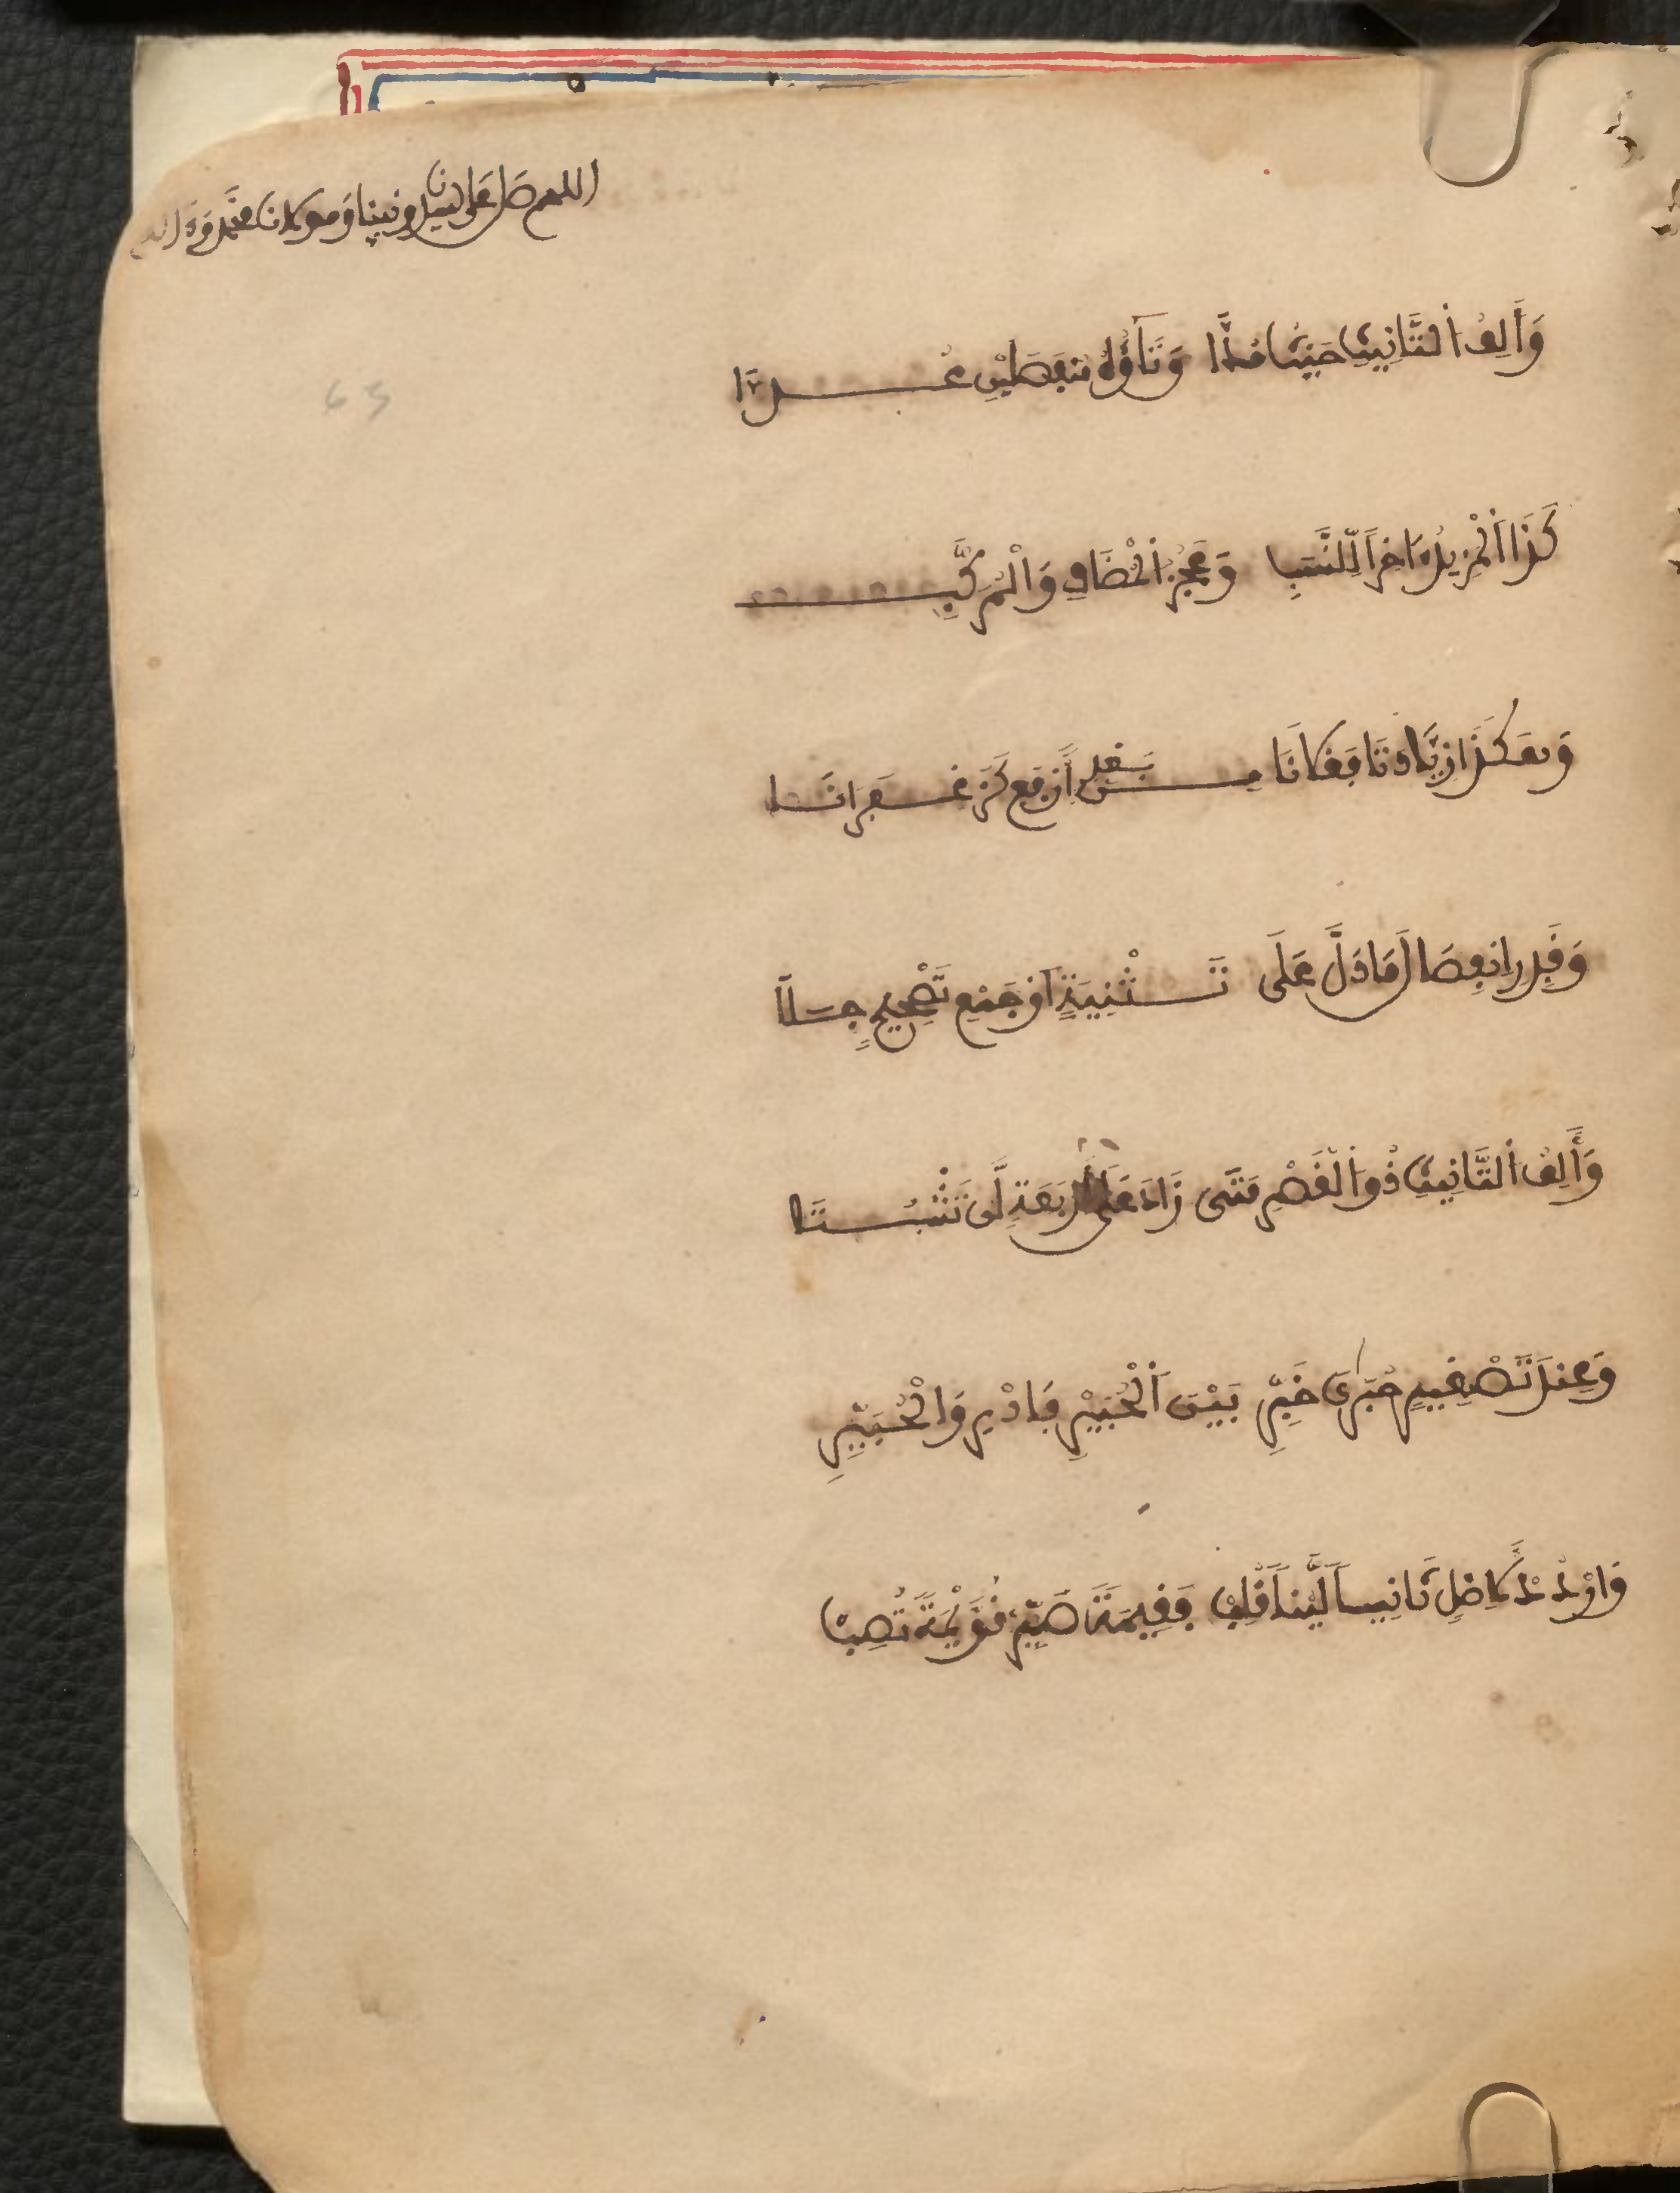 اللهم صل على سيدنا ونبينا ومولانا محمد وءاله
63
وَأَلِفُ التَّانِيثِ حَيْثُ مُدَّا وَتَاؤُهُ مُنفَصِلَيْنِ عُدَّا
كَذَا الْمَزِيدُ ءَاخِراً لِلنَّسَبِ وَعَجُزُ الْمُضَافِ وَالْمُرَكَّبِ
وَهَكَذَا زِيَادَتَا فَعْلَانَا مِنْ بَعْدِ أَرْبَعٍ كَزَعْفَرَانَا
وَقَدِّرِ انفِصَالَ مَا دَلَّ عَلَى تَثْنِيَةٍ أَوْ جَمْعِ تَصْحِيحٍ جَلَا
وَأَلِفُ التَّانِيثِ ذُو الْقَصْرِ مَتَى زَادَ عَلَى أَرْبَعَةٍ لَن تَثْبُتَا
وَعِندَ تَصْغِيرِ حُبَارَى خَيِّرِ بَيْنَ الْحُبَيْرَى فَادْرِ وَالْحُبَيِّرِ
وَارْدُدْ لِأَصْلٍ ثَانِياً لَيْناً قُلِبْ فَقِيمَةً صَيِّرْ قُوَيْمَةً تُصِبْ